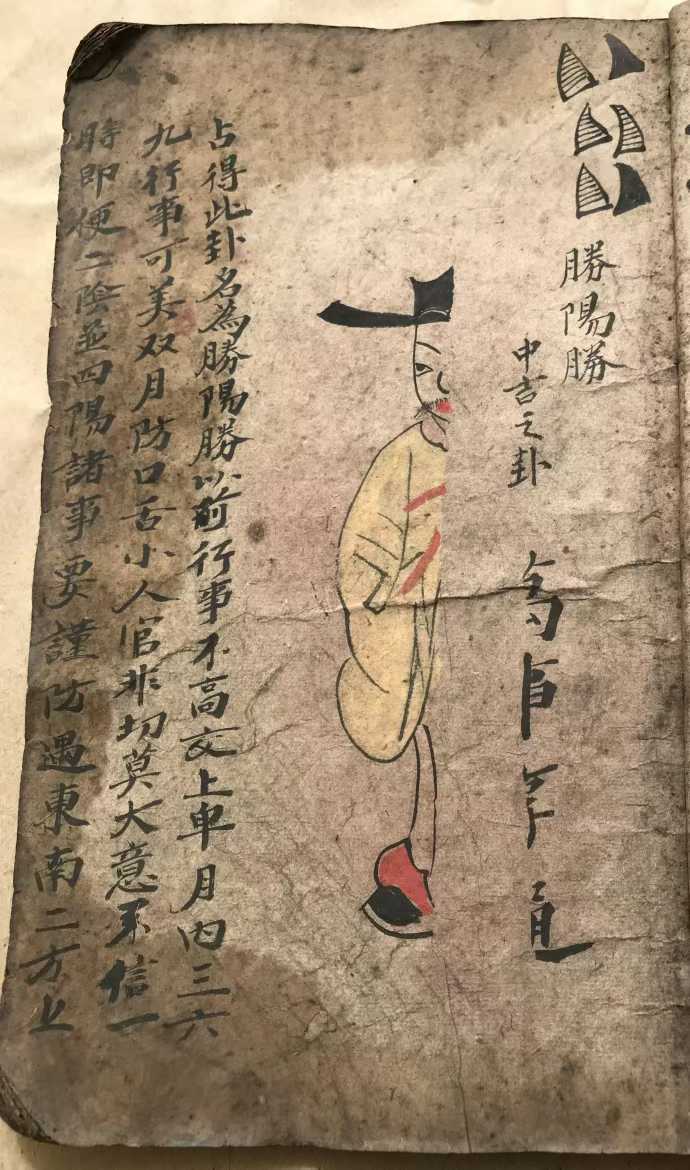 勝陽勝
中吉之卦
占得此卦名為勝陽勝以前行事不高交上单月内三六
九行事可美双月防口舌小人官非切莫大意不信一
時即便二陰並四陽諸事要謹防遇東南二方上